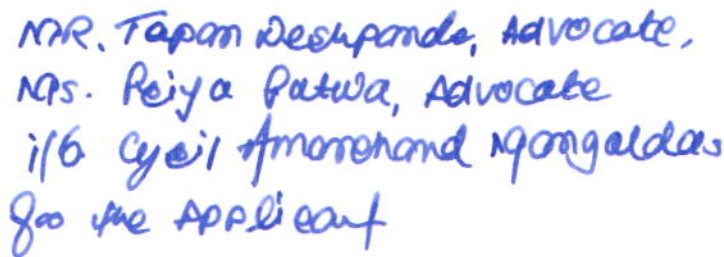 MR. Tapan Deshpande, Advocate,
Ms. Priya Patwa, Advocate
i/b Cyril Amarchand Mangaldas
for the Applicant